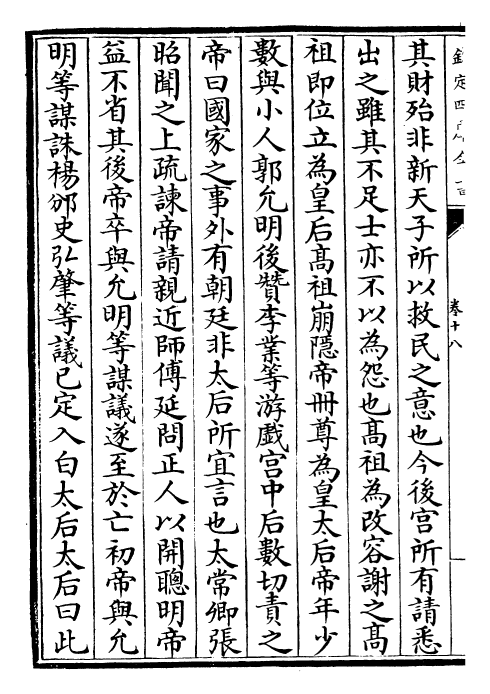 欽定四庫全書
卷十八
其財殆非新天子所以救民之意也今後宫所有請悉
出之雖其不足士亦不以為怨也髙祖為改容謝之髙
祖即位立為皇后髙祖崩隱帝冊尊為皇太后帝年少
數與小人郭允明後贊李業等游戲宫中后數切責之
帝曰國家之事外有朝廷非太后所宜言也太常卿張
昭聞之上疏諫帝請親近師傅延問正人以開聰明帝
益不省其後帝卒與允明等謀議遂至於亡初帝與允
明等謀誅楊邠史弘肇等議已定入白太后太后曰此